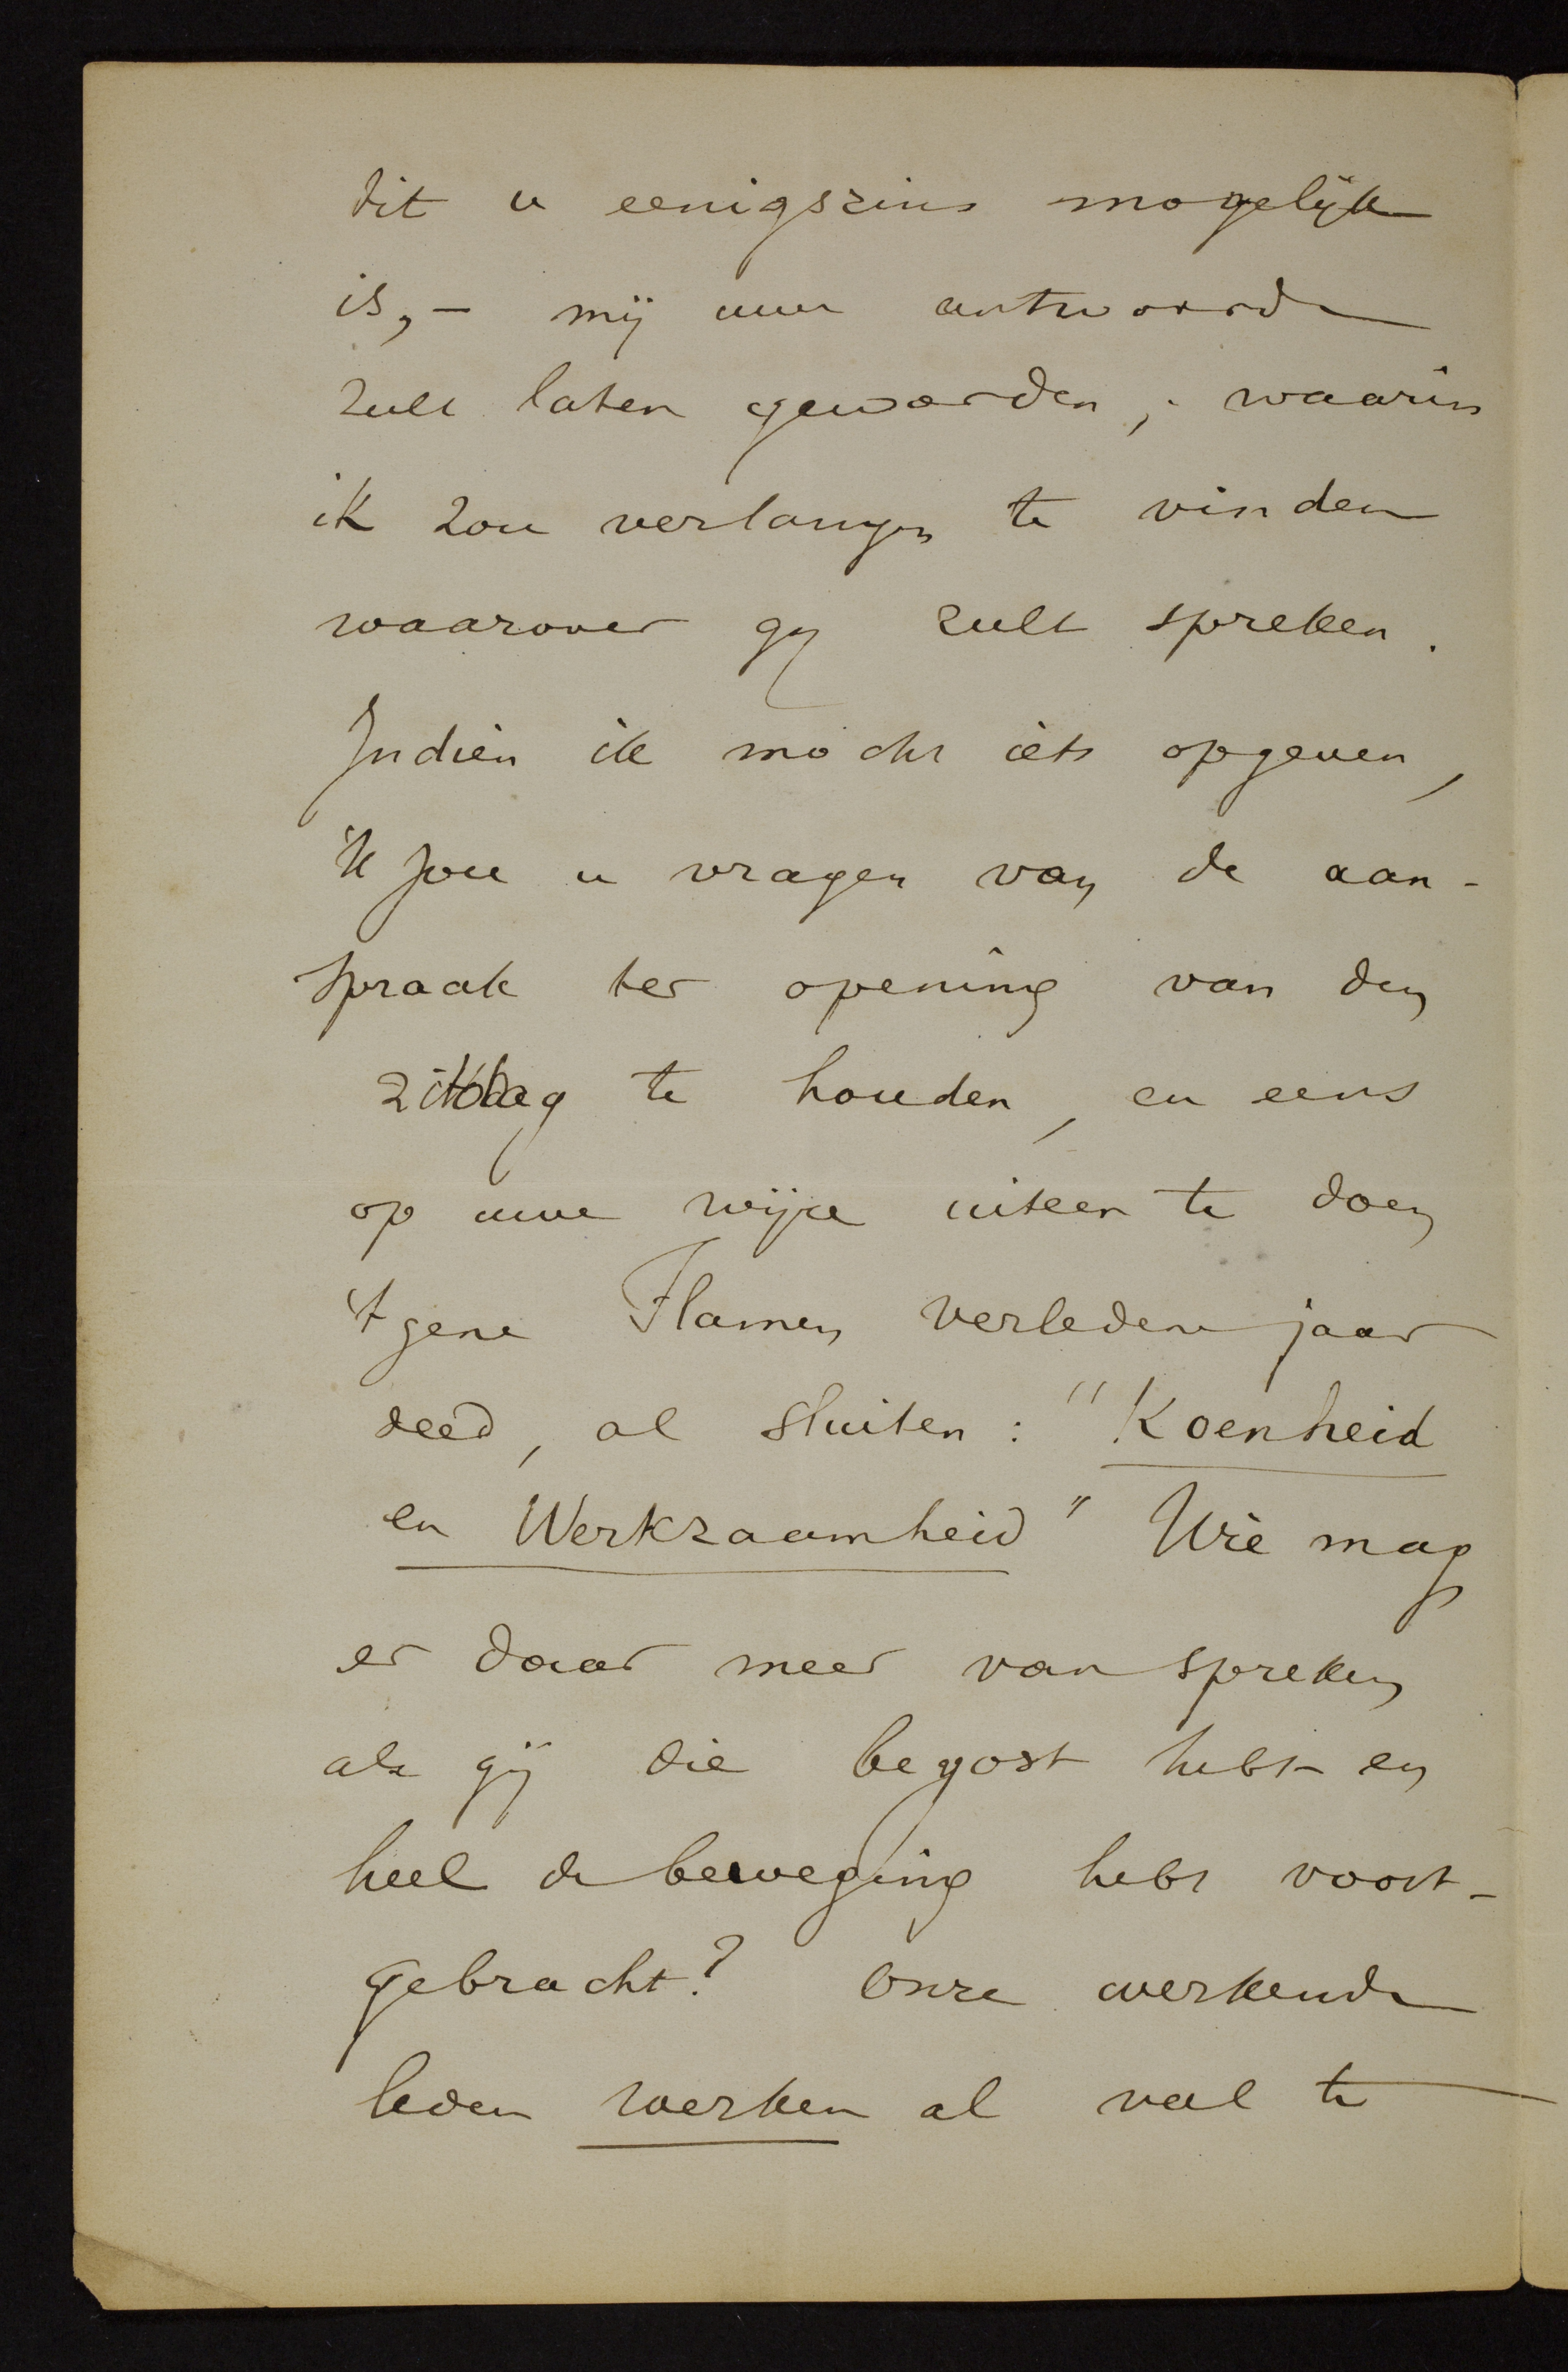 dit u eenigszins mogelijk
is, – mij uwe antwoorde
zult laten geworden, waarin
ik zou verlangen te vinden
waarover gij zult spreken.
Indien ik mocht iets opgeven,
'k zou u vragen van de aan-
spraak ter opening van den
zittdag te houden, en eens
op uwe wijze uiteen te doen
't gene Flamen verledene jaar
deed, al sluiten: "Koenheid
en Werkzaamheid" Wie mag
er daar meer van spreken
als gij die begost hebt en
heel de beweging hebt voort-
gebracht? Onze werkende
leden werken al veel te